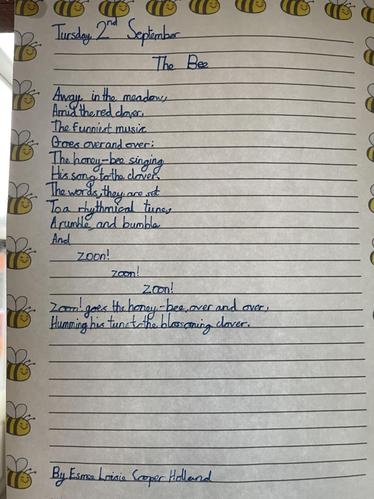 Tursday 2nd September
The Bee
Away in the meadow,
Amid the red clover,
The funniest music
Goes over and over:
The honey-bee singing
His song to the clover.
The words, they are set
To a rhythmical tune,
A rumble and bumble
And
zoon!
zoon!
Zoon!
Zoon! goes the honey-bee, over and over,
Humming his tune to the blossoming clover.
By Esmee Cooper Holland